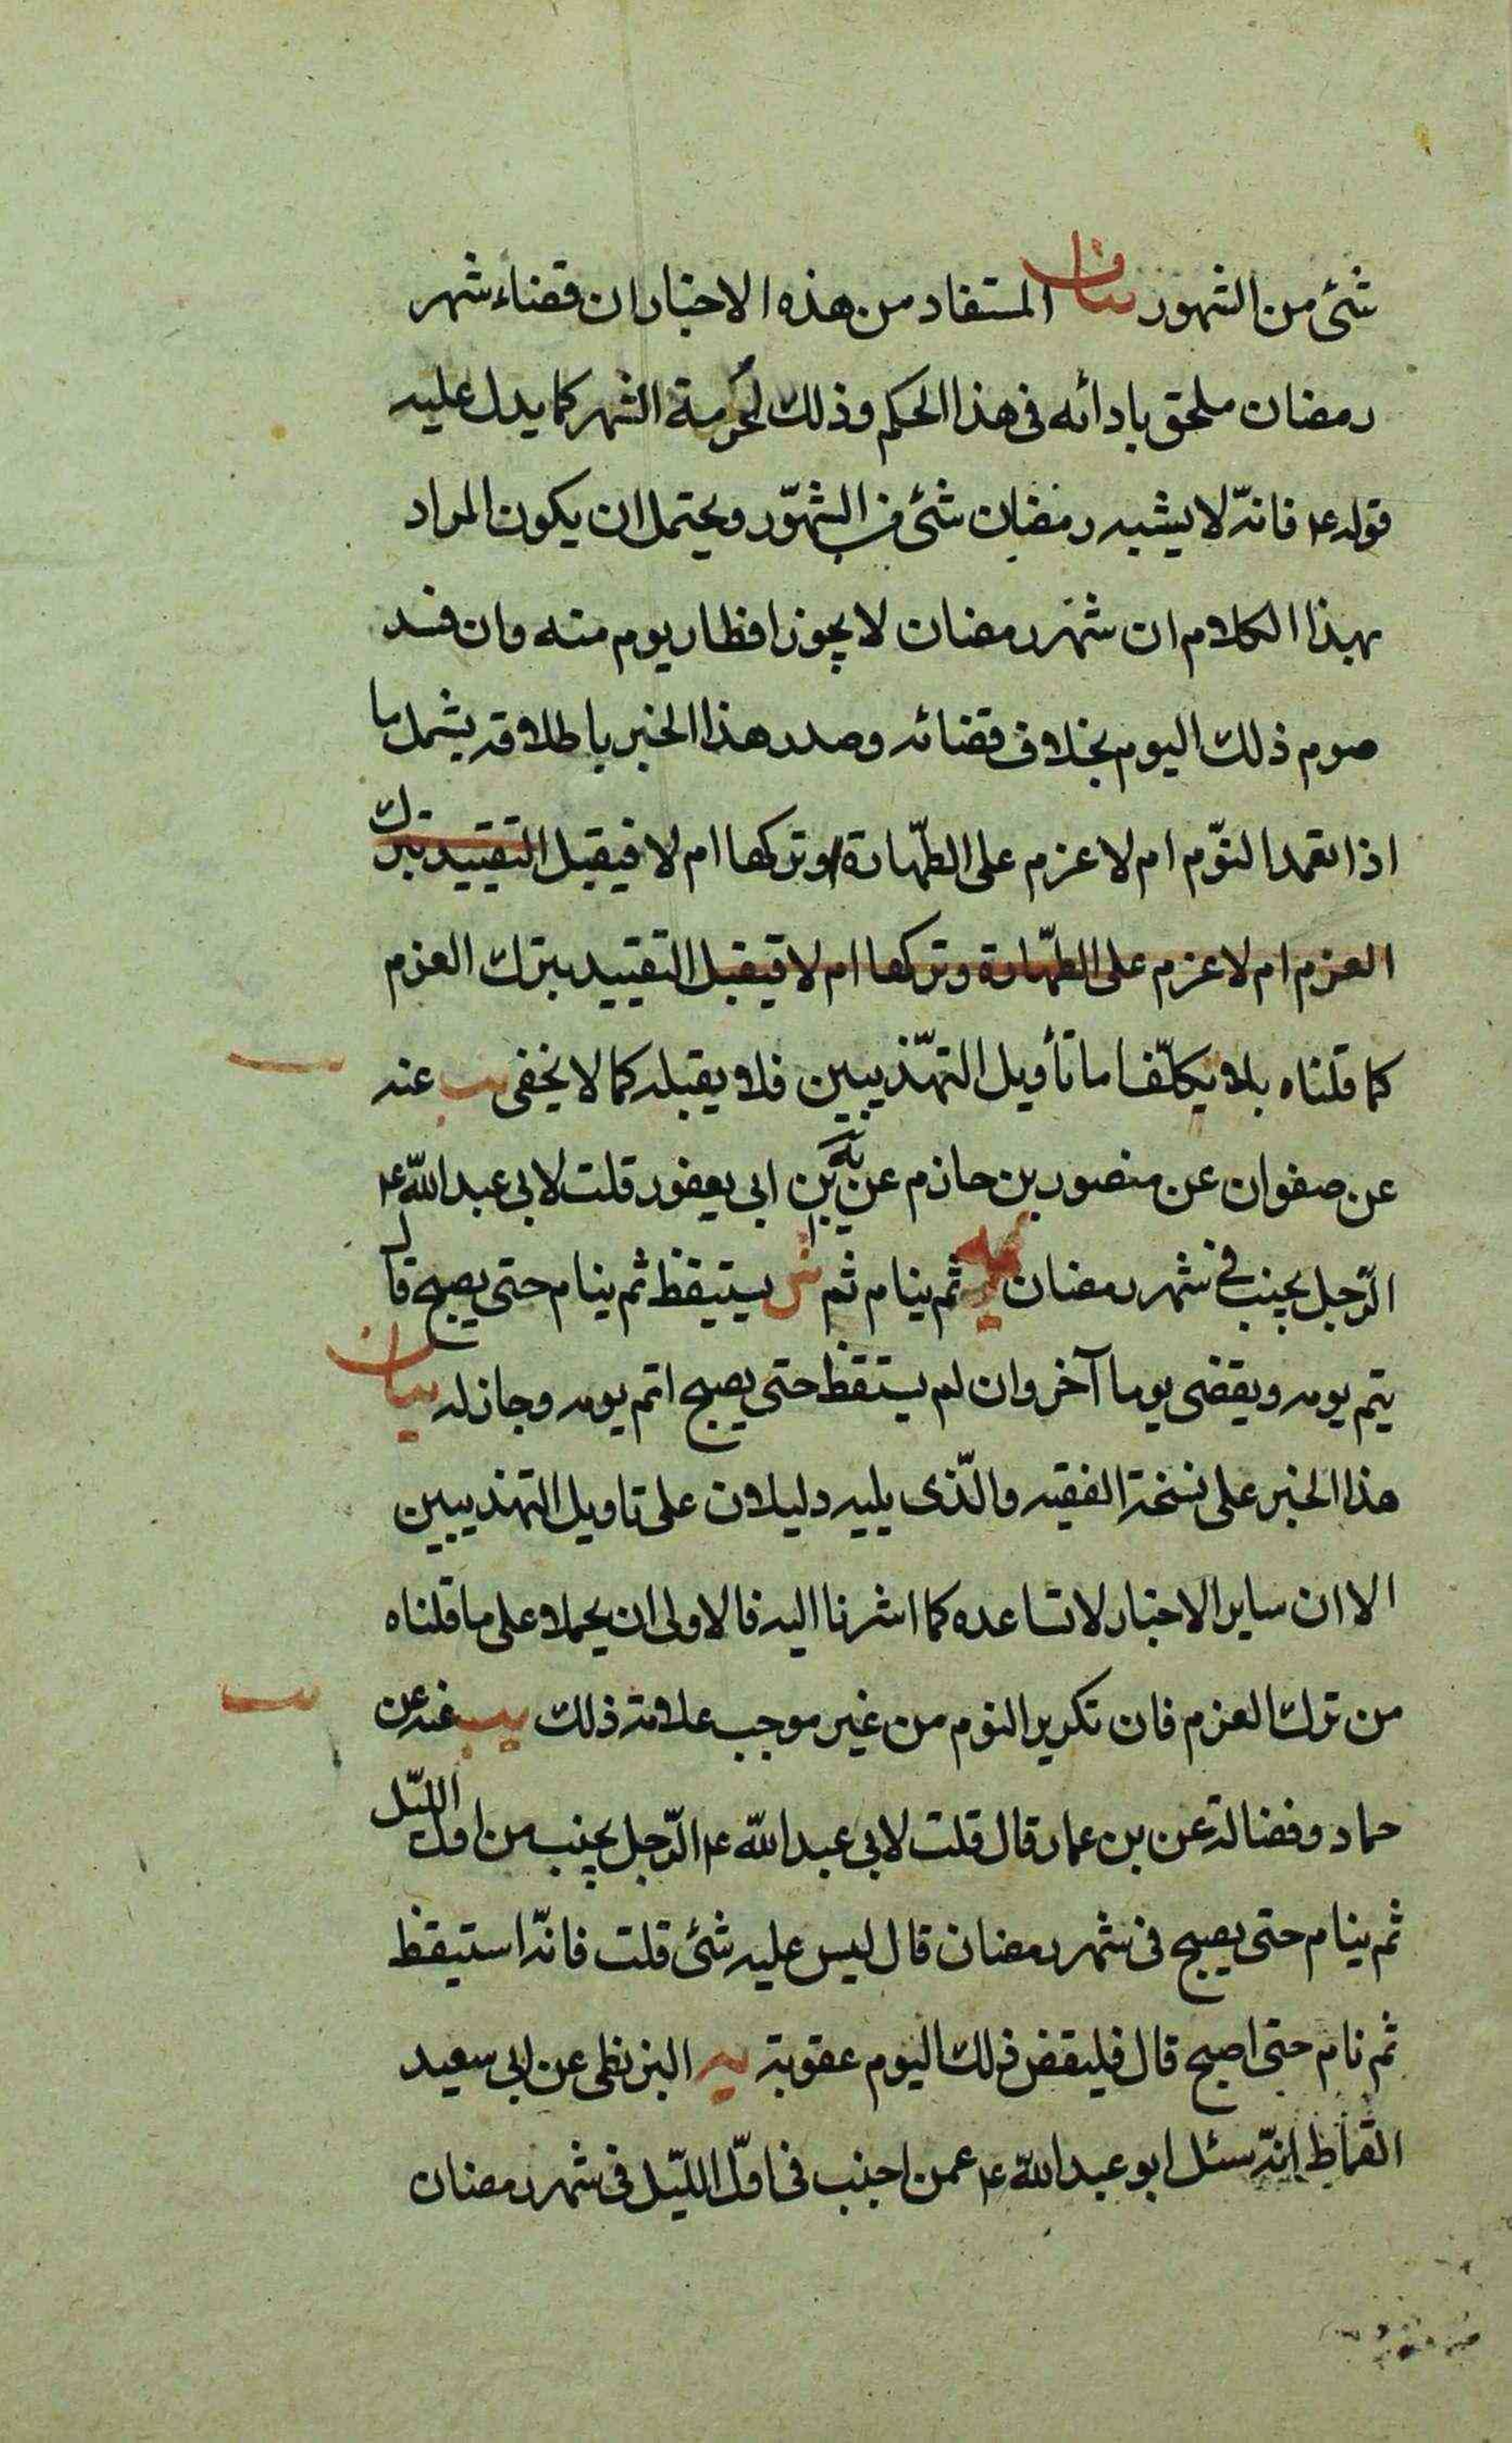 شئ من الشهور بيان المستفاد من هذه الاخبار ان قضاء شهر
رمضان ملحق بادائه فى هذا الحكم وذلك لحُرمة الشهر كما يدل عليه
قوله ع فانّه لا يشبه رمضان شئ من الشهّور ويحتمل ان يكون المراد
بهذا الكلام ان شهر رمضان لا يجوز افطار يوم منه وان فسد
صوم ذلك اليوم بخلاف قضائه وصدر هذا الخبر باطلاقه يشمل ما
اذا تعمد النوّم ام لا عزم على الطّهارة او تركها ام لا فيقبل التقييد بترك
العزم ام لا عزم على الطّهارة وتركها ام لا فيقبل التقييد بترك العزم
كما قلناه بلا تكلّف اما تأويل التهّذيبين فلا يقبله كما لا يخفى يب عنه
عن صفوان عن منصور بن حازم عن يه بن ابى يعفور قلت لابى عبد اللّه ع
الرّجل يجنب فى شهر رمضان ثم ينام ثم ش يستيقظ ثم ينام حتى يصبح قال
يتم يومه ويقضى يوما آخر وان لم يستقظ حتى يصبح اتم يومه وجاز له بيان
هذا الخبر على نسخة الفقيه والّذى يليه دليلان على تاويل التهذيبين
الا ان ساير الاخبار لا تساعده كما اشرنا اليه فالاولى ان يحملا على ما قلناه
من ترك العزم فان تكرير النوم من غير موجب علامة ذلك يب عنه عن
حماد وفضالة عن بن عمار قال قلت لابى عبد اللّه ع الرّجل يجنب من اول الليّل
ثم ينام حتى يصبح فى شهر رمضان قال ليس عليه شئ قلت فانّه استيقظ
ثم نام حتى اصبح قال فليقض ذلك اليوم عقوبة يه البزنطى عن ابى سعيد
القماط انّه سئل ابو عبد اللّه ع عمن اجنب فى اوّل الليّل فى شهر رمضان